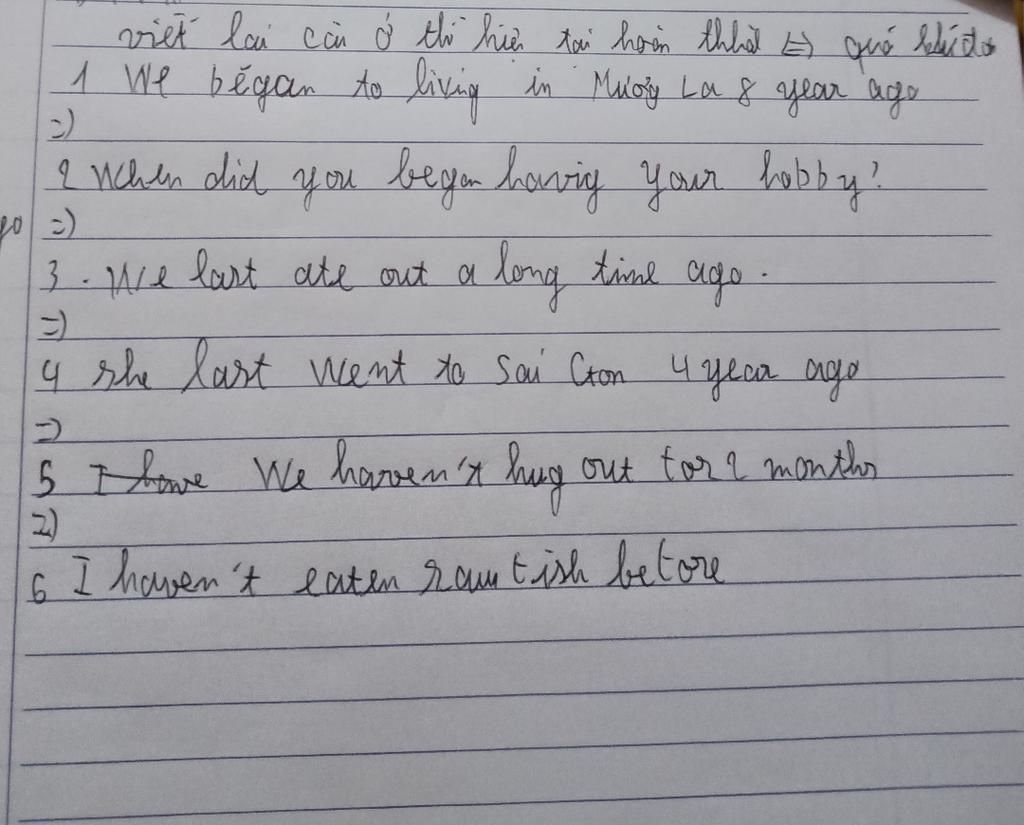 viết lại câu ở thì hiện tại hoàn thành <=> quá khứ đơn
1 We began to living in Mường La 8 year ago
=)
2 When did you began having your hobby?
=)
3. We last ate out a long time ago.
=)
4 she last went to Sài Gòn 4 year ago
=)
5 I have We haven't hug out for 2 months
=)
6 I haven't eaten raw fish before